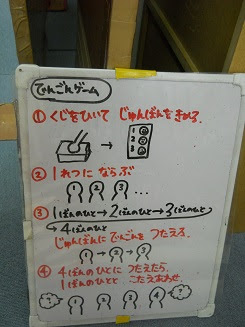 でんごんゲーム
① くじをひいて じゅんばんを きめる.
1
2
3
② 1れつに ならぶ
1 2 3 ...
③ 1ばんのひと→2ばんのひと→3ばんのひと
→4ばんのひと
じゅんばんに でんごんを つたえる.
1 → 2 → 3
④ 4ばんのひとに つたえたら、
1ばんのひとと こたえあわせ.
? 1 2 3 4 ?